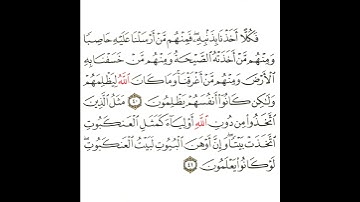 فَكُلًّا أَخَذْنَا بِذَنْبِهِ فَمِنْهُم مَّنْ أَرْسَلْنَا عَلَيْهِ حَاصِبًا
وَمِنْهُم مَّنْ أَخَذَتْهُ الصَّيْحَةُ وَمِنْهُم مَّنْ خَسَفْنَا بِهِ
الْأَرْضَ وَمِنْهُم مَّنْ أَغْرَقْنَا وَمَا كَانَ اللَّهُ لِيَظْلِمَهُمْ
وَلَٰكِن كَانُوا أَنفُسَهُمْ يَظْلِمُونَ ٤٠ مَثَلُ الَّذِينَ
اتَّخَذُوا مِن دُونِ اللَّهِ أَوْلِيَاءَ كَمَثَلِ الْعَنكَبُوتِ
اتَّخَذَتْ بَيْتًا وَإِنَّ أَوْهَنَ الْبُيُوتِ لَبَيْتُ الْعَنكَبُوتِ
لَوْ كَانُوا يَعْلَمُونَ ٤١